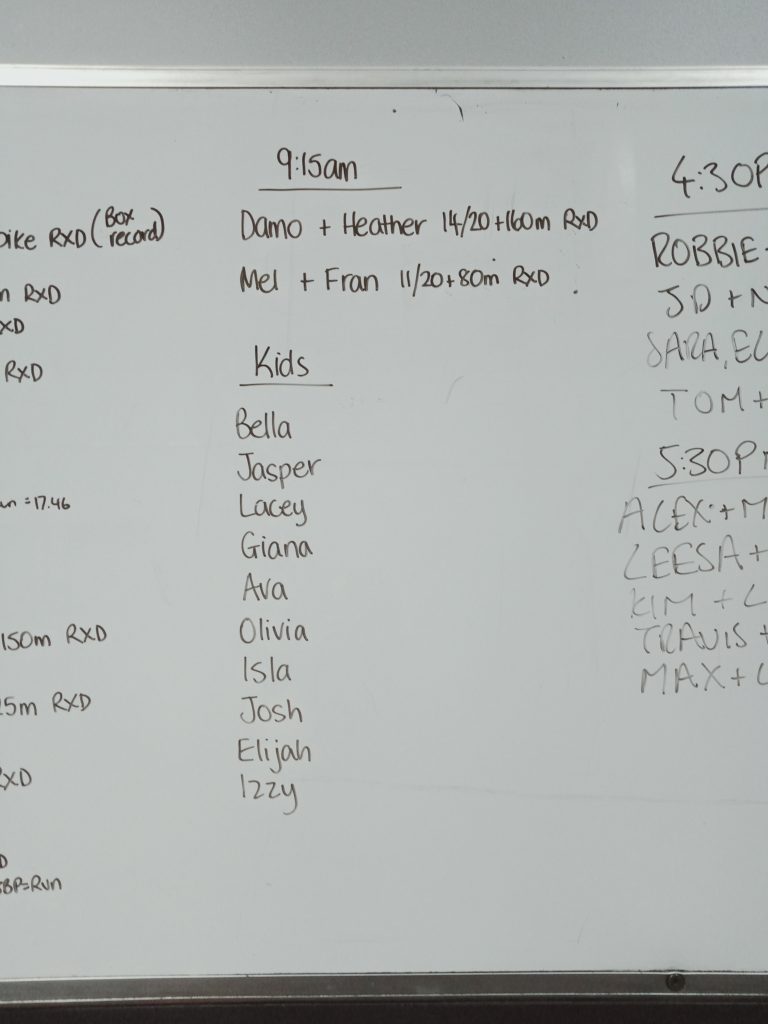 RXD (Box record)
RXD
RXD
=17.46
150m RXD
RXD
=Run
9:15am
Damo + Heather 14/20+160m RXD
Mel + Fran 11/20+80m RXD
Kids
Bella
Jasper
Lacey
Giana
Ava
Olivia
Isla
Josh
Elijah
Izzy
4:30P
ROBBIE
JD +
SARA,
TOM +
5:30P
ALEX +
LEESA +
KIM +
TRAVIS +
MAX +